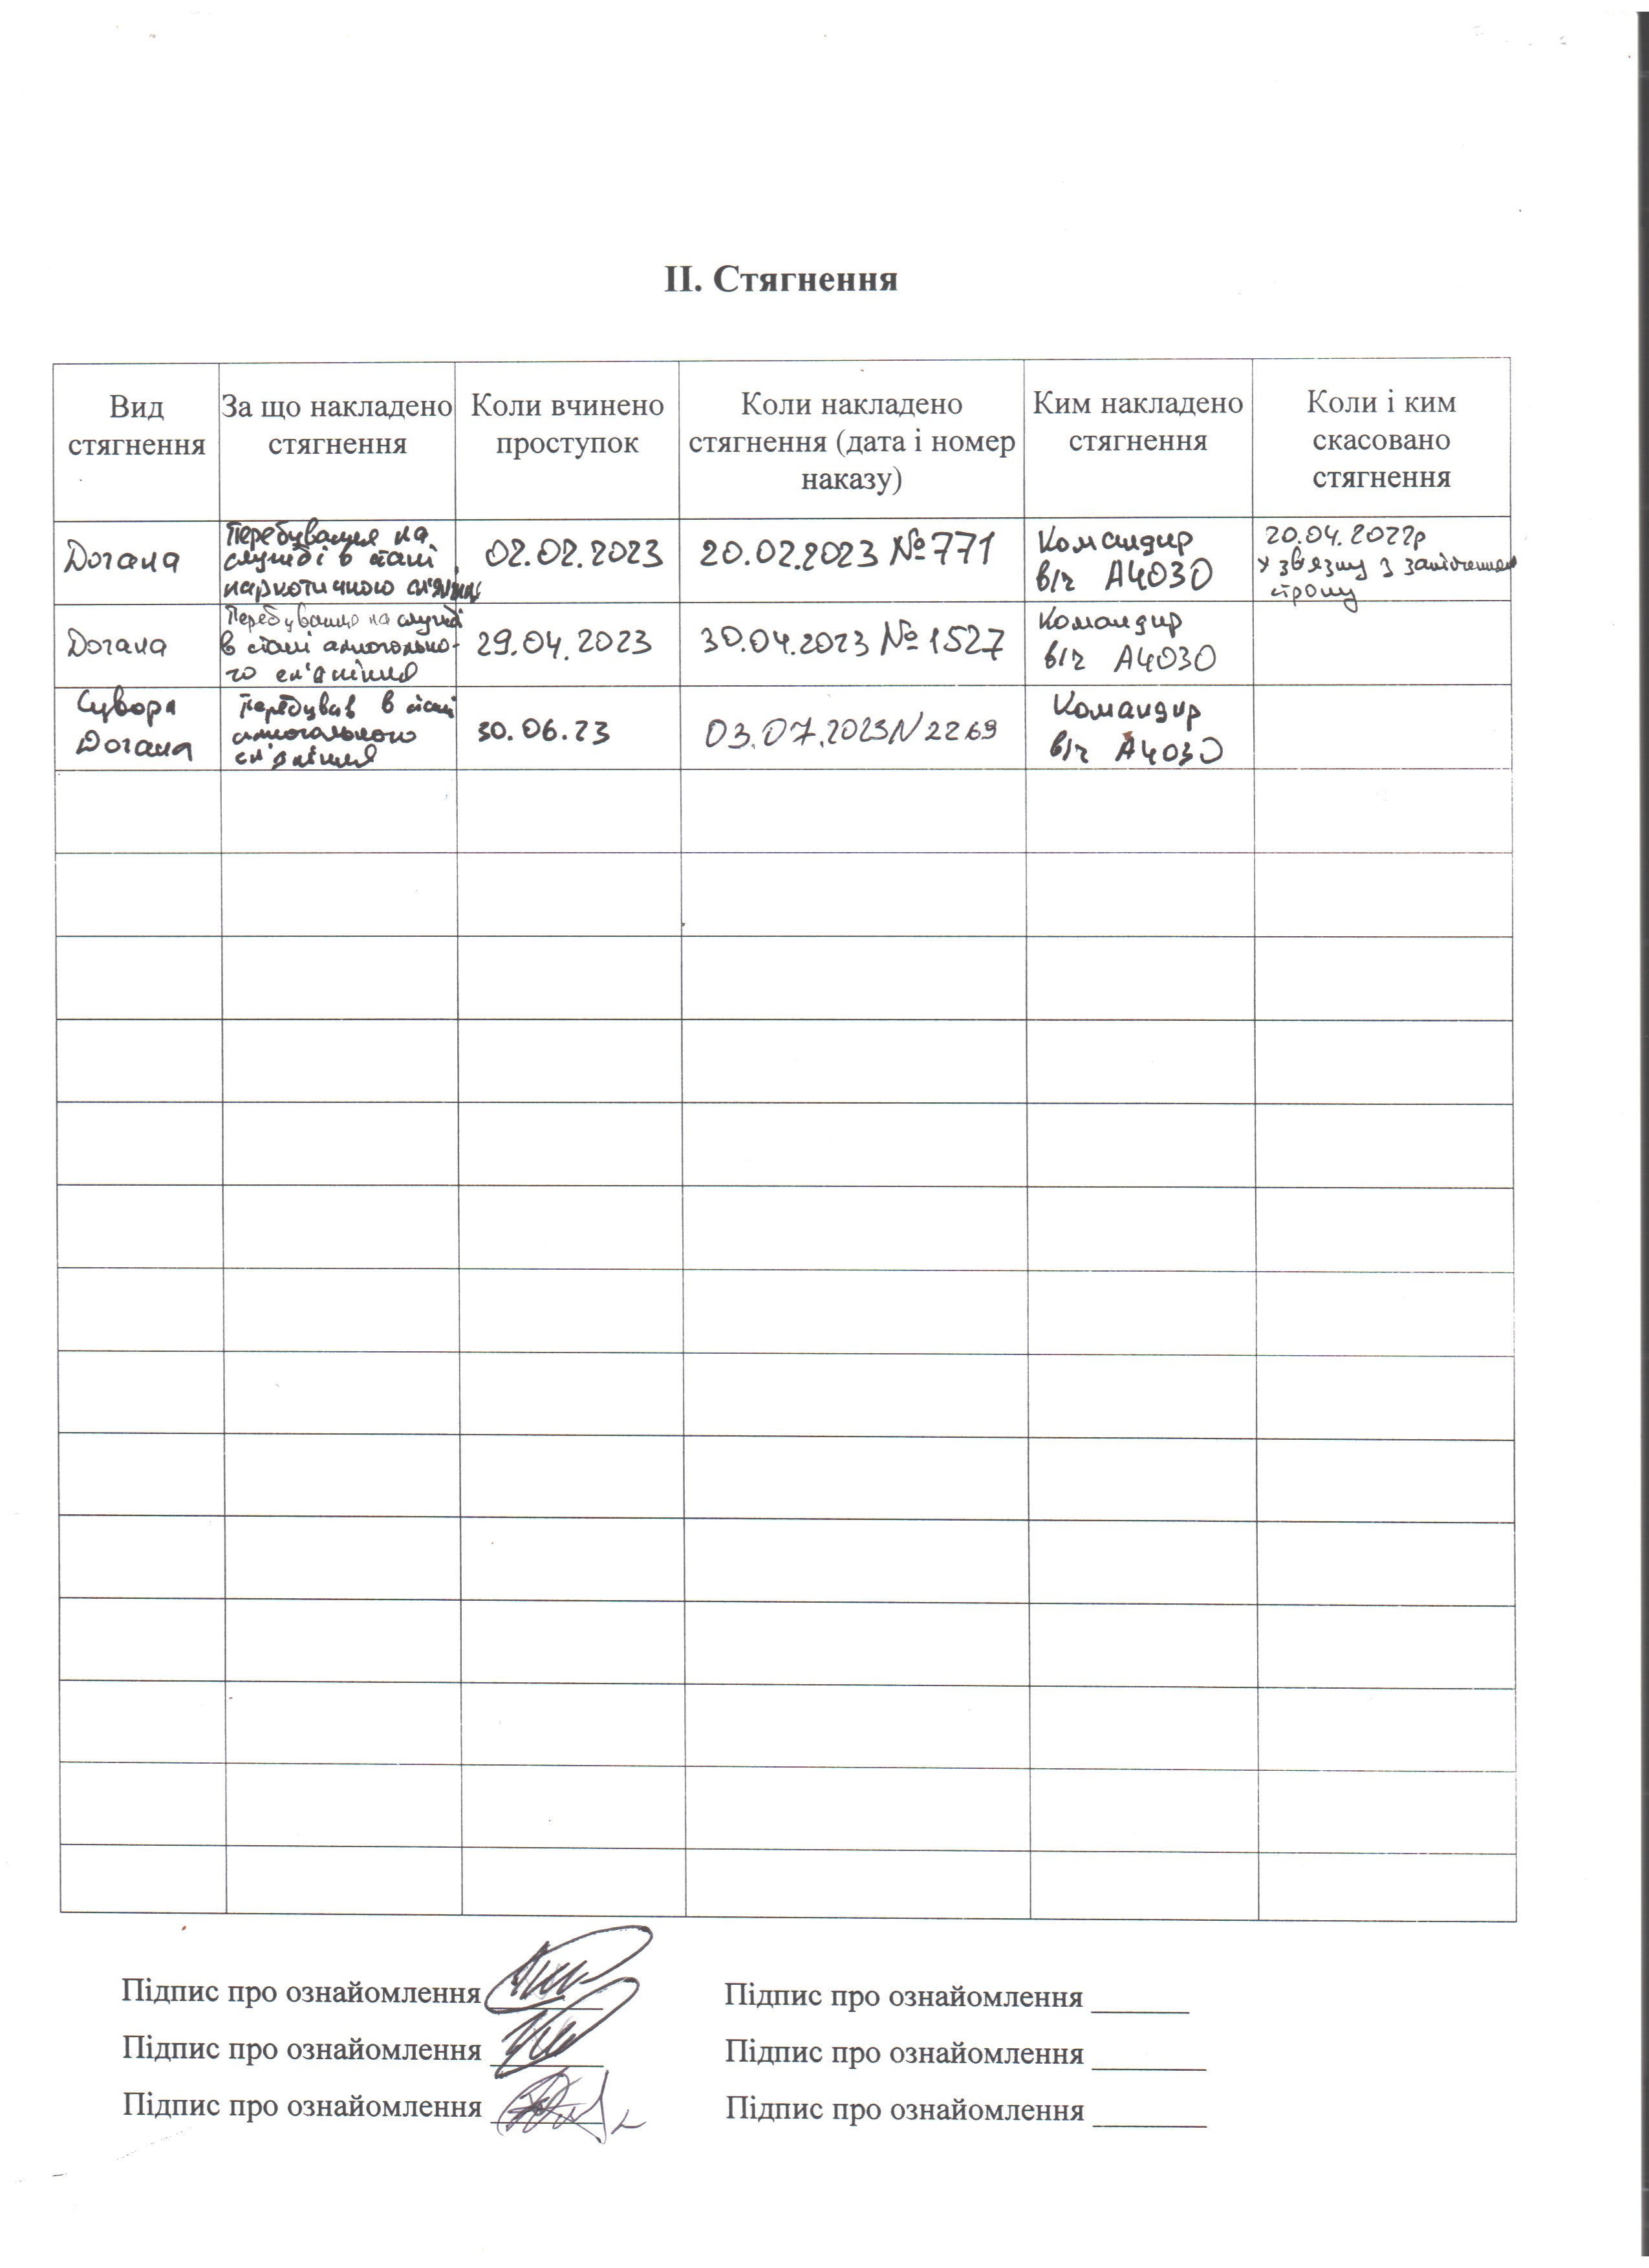 II. Стягнення
Вид
стягнення
За що накладено
стягнення
Коли вчинено
проступок
Коли накладено
стягнення (дата і номер
наказу)
Ким накладено
стягнення
Коли і ким
скасовано
стягнення
Догана
Перебування на
службі в стані
наркотичного
02.02.2023
20.02.2023 №771
Командир
в/ч А4030
20.04.2022р
у зв'язку з
строку
Догана
Перебування на службі
в стані алкогольно-
го сп'яніння
29.04.2023
30.04.2023 №1527
Командир
в/ч А4030
Сувора
Догана
Перебував в стані
алкогольного
сп'яніння
30.06.23
03.07.2023 N 2269
Командир
в/ч А4030
Підпис про ознайомлення
Підпис про ознайомлення
Підпис про ознайомлення
Підпис про ознайомлення
Підпис про ознайомлення
Підпис про ознайомлення